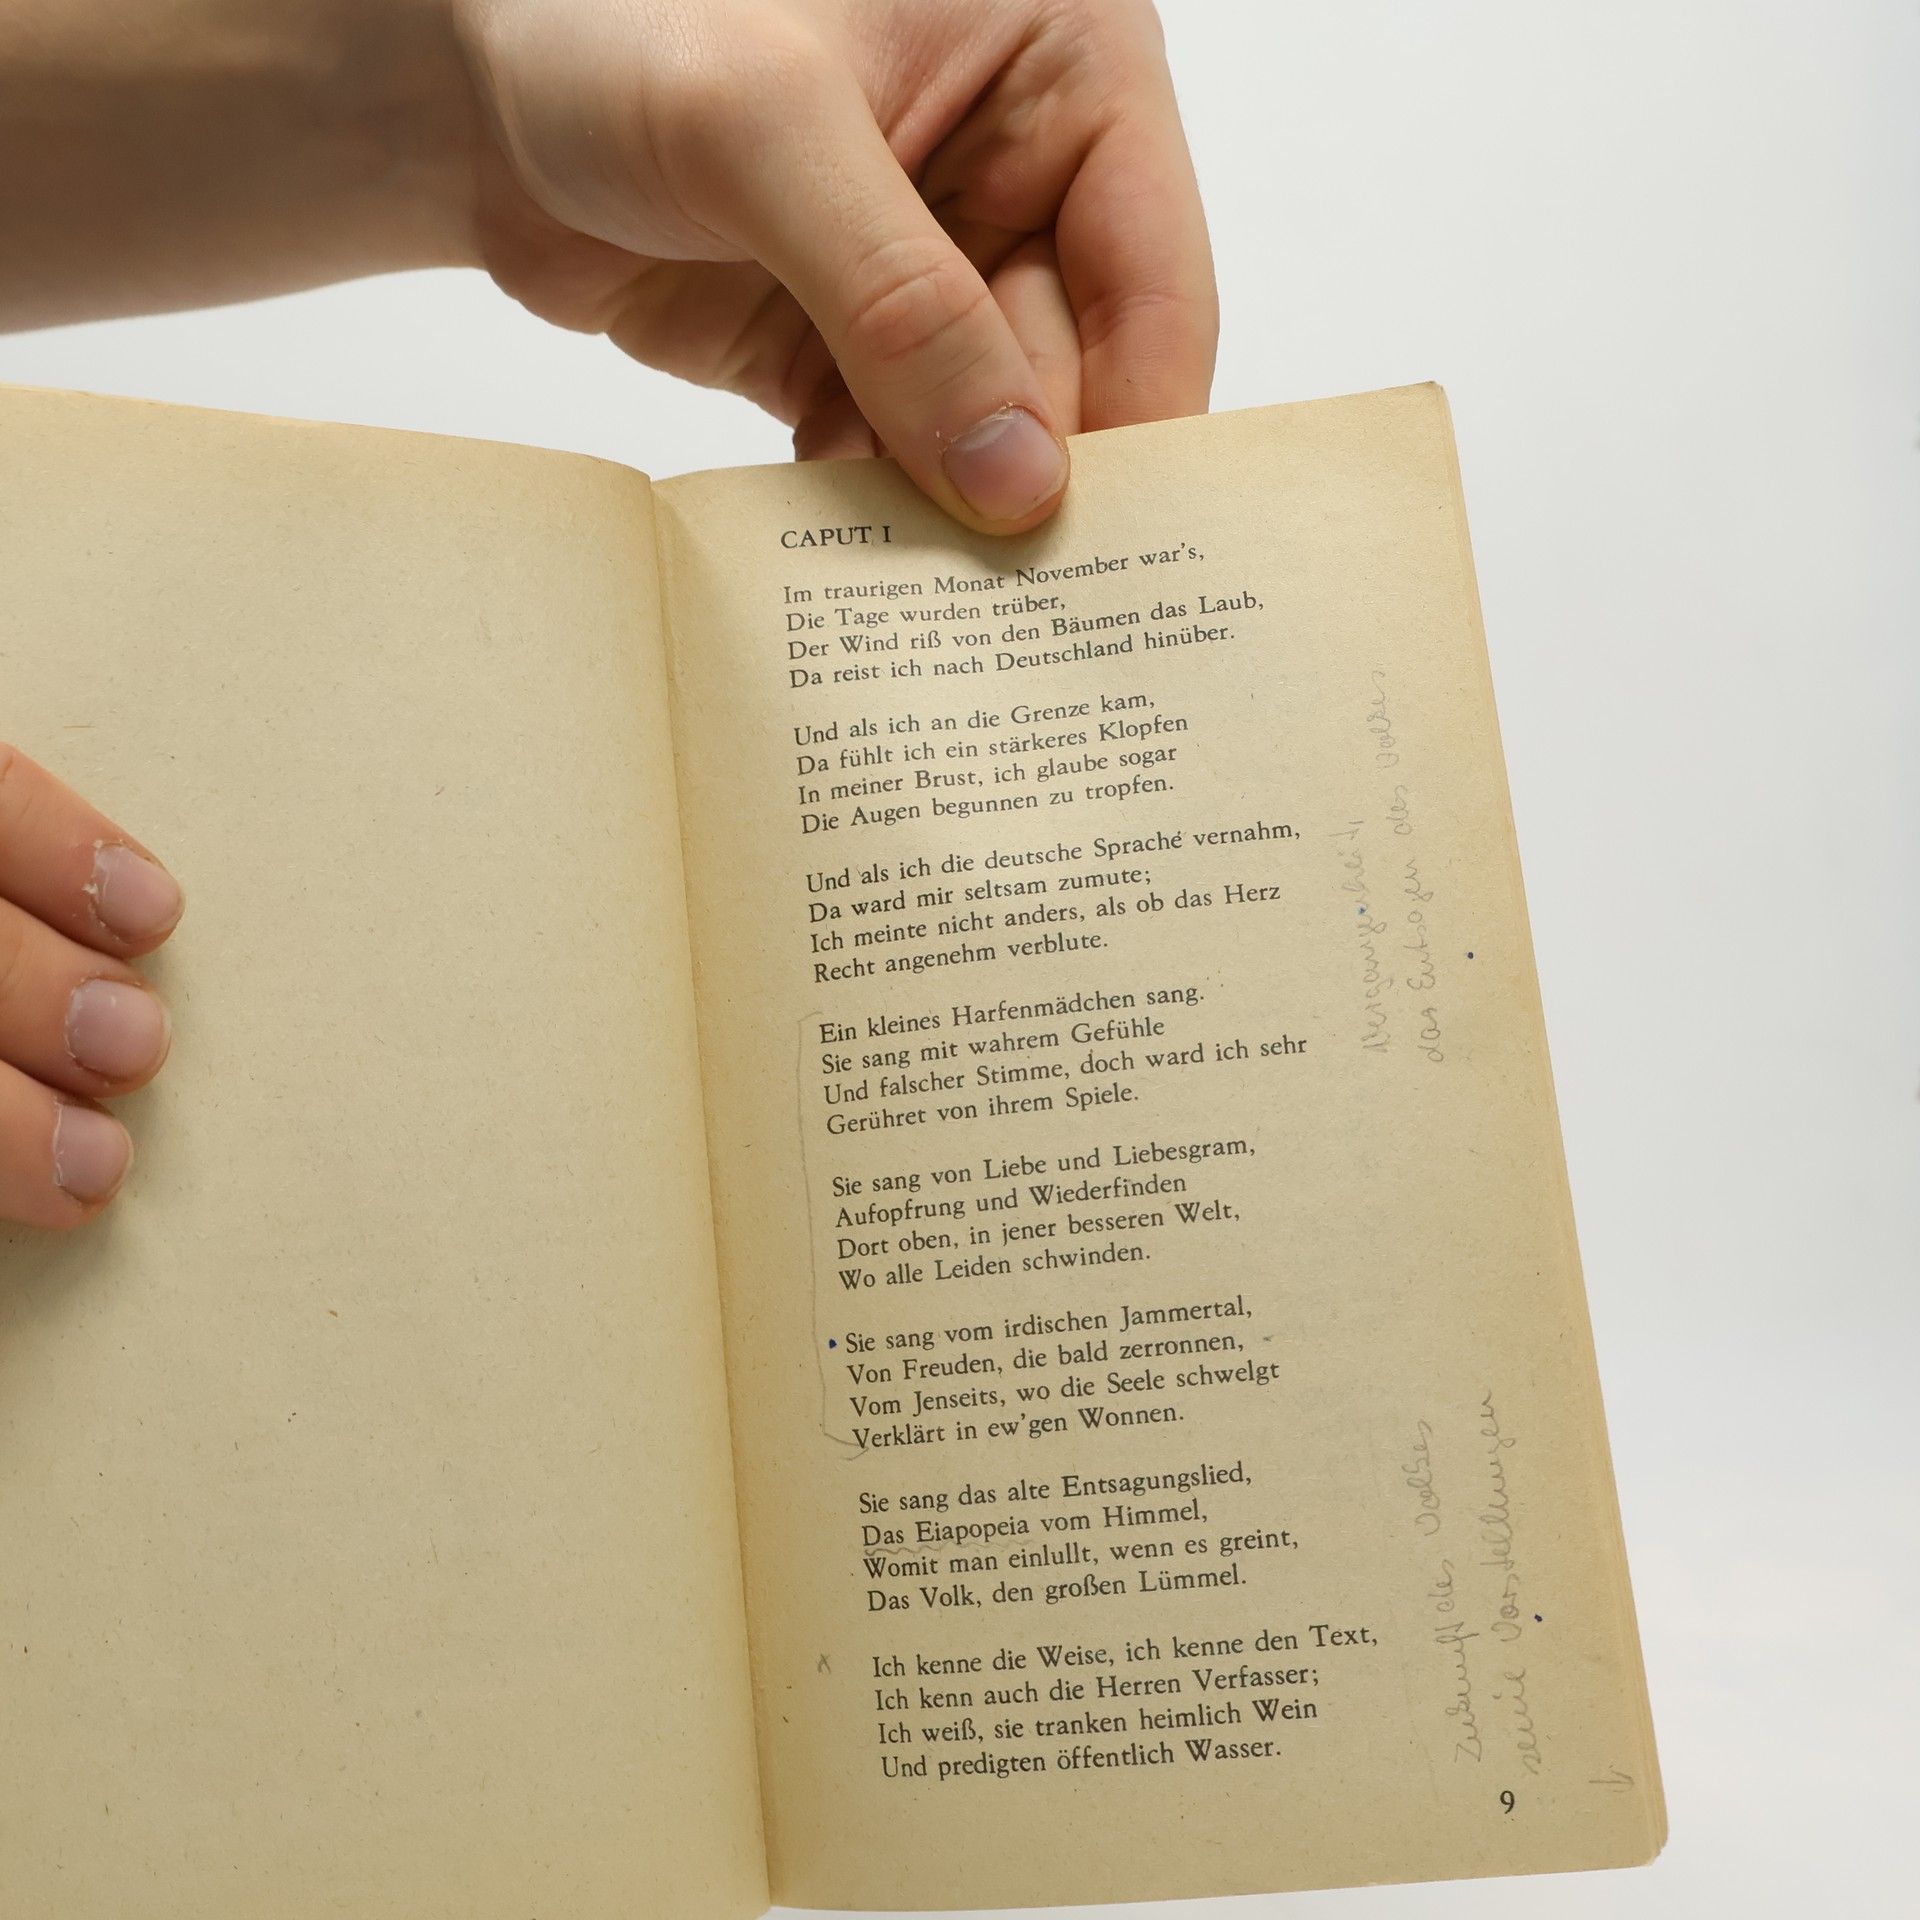 CAPUT I
Im traurigen Monat November war's,
Die Tage wurden trüber,
Der Wind riß von den Bäumen das Laub,
Da reist ich nach Deutschland hinüber.
Und als ich an die Grenze kam,
Da fühlt ich ein stärkeres Klopfen
In meiner Brust, ich glaube sogar
Die Augen begunnen zu tropfen.
Und als ich die deutsche Sprache vernahm,
Da ward mir seltsam zumute;
Ich meinte nicht anders, als ob das Herz
Recht angenehm verblute.
Ein kleines Harfenmädchen sang.
Sie sang mit wahrem Gefühle
Und falscher Stimme, doch ward ich sehr
Gerühret von ihrem Spiele.
Sie sang von Liebe und Liebesgram,
Aufopfrung und Wiederfinden
Dort oben, in jener besseren Welt,
Wo alle Leiden schwinden.
Sie sang vom irdischen Jammertal,
Von Freuden, die bald zerronnen,
Vom Jenseits, wo die Seele schwelgt
Verklärt in ew'gen Wonnen.
Sie sang das alte Entsagungslied,
Das Eiapopeia vom Himmel,
Womit man einlullt, wenn es greint,
Das Volk, den großen Lümmel.
Ich kenne die Weise, ich kenne den Text,
Ich kenn auch die Herren Verfasser;
Ich weiß, sie tranken heimlich Wein
Und predigten öffentlich Wasser.
9
Vergangenheit,
das Entsagen des Volkes
Zukunft des Volkes
seine Vorstellungen